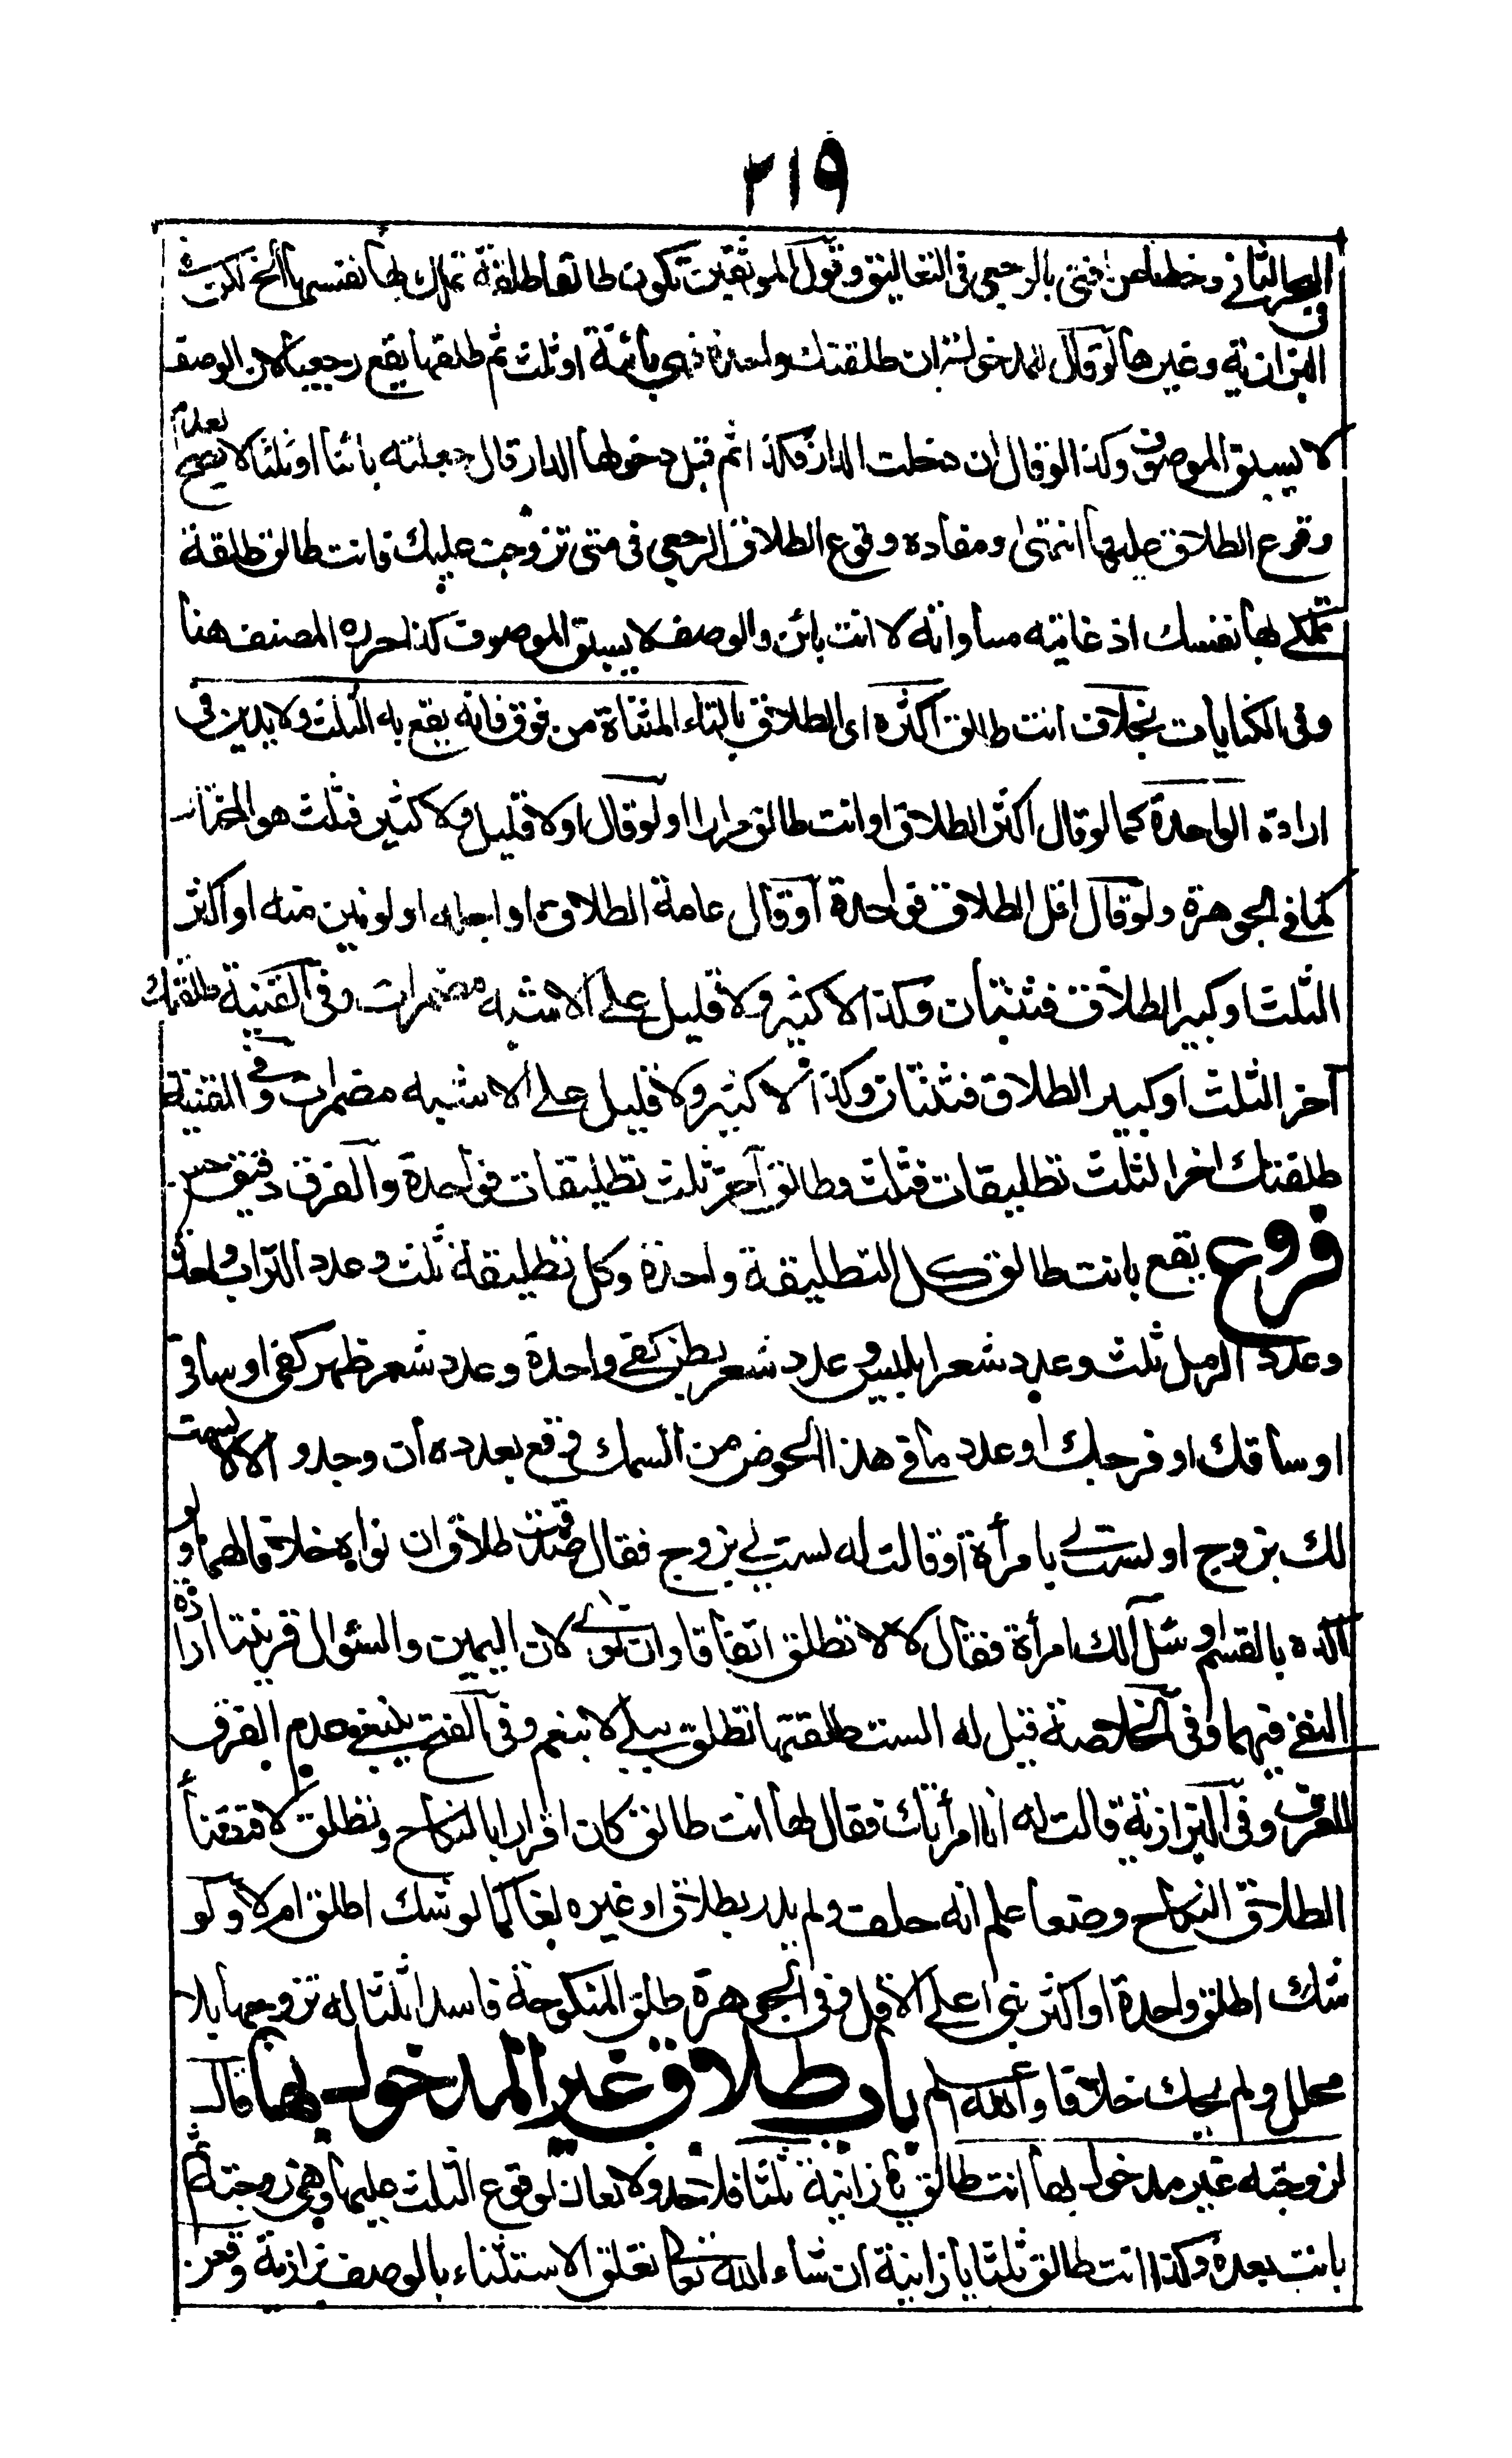 ٢١٩
البحر الثاني وخطأ من افتى بالرجعي في التعاليق وقول الموثقين تكون طالقا طلقة تملك بها نفسها الخ لكن في
البزازية وغيرها لو قال للمدخولة ان طلقتك واحدة فهي بائنة او ثلث ثم طلقها يقع رجعيا لان الوصف
لا يسبق الموصوف وكذا لو قال ان دخلت الدار فكذا ثم قبل دخولها الدار قال جعلته بائنا او ثلثا لا يصح لعدم
وقوع الطلاق عليها انتهى ومفاده وقوع الطلاق الرجعي في متى تزوجت عليك فانت طالق طلقة
تملكي بها نفسك اذ غايته مساواته لانت بائن والوصف لا يسبق الموصوف كذا حرره المصنف هنا
وفي الكنايات بخلاف انت طالق اكثره اي الطلاق بالتاء المثناة من فوق فانه يقع به الثلث ولا يدين في
ارادة الواحدة كما لو قال اكثر الطلاق او انت طالق مرارا او لو قال اولا قليل ولا كثير فثلث هو المختار
كما في الجوهرة ولو قال اقل الطلاق فواحدة او قال عامة الطلاق او اجله او لونين منه او اكثر
الثلث او كبير الطلاق فثنتان وكذا لا كثير ولا قليل على الاشبه مضمرات وفي القنية طلقتك
آخر الثلث او كبير الطلاق فثنتان وكذا لا كثير ولا قليل على الاشبه مضمرات وفي القنية
طلقتك اخر الثلث تطليقات فثلث وطالق آخر ثلث تطليقات فواحدة والفرق دقيق حسن
فروع يقع بانت طالق كل التطليقة واحدة وكل تطليقة ثلث وعدد التراب واحدة
وعدد الرمل ثلث وعدد شعر ابليس وعدد شعر بطن كفي واحدة وعدد شعر ظهر كفي او ساقي
او ساقك او فرجك او عدد ما في هذا الحوض من السمك وقع بعدده ان وجد والا لا لست
لك بزوج او لست لي بامرأة او قالت له لست لي بزوج فقال صدقت طلاق ان نواه خلافا لهما ولو
اكده بالقسم او سئل الك امرأة فقال لا لا تطلق اتفاقا وان نوى لان اليمين والسؤال قرينتا ارادة
النفي فيهما وفي الخلاصة قيل له الست طلقتها تطلق ببلى لا بنعم وفي الفتح ينبغي عدم الفرق
للعرف وفي البزازية قالت له انا امرأتك فقال لها انت طالق كان اقرارا بالنكاح وتطلق لاقتضاء
الطلاق النكاح وضعا علم انه حلف ولم يدر بطلاق او غيره لغا كما لو شك اطلق ام لا ولو
شك اطلق واحدة او اكثر بنى على الاقل وفي الجوهرة طلق المنكوحة فاسدا ثلثا له تزوجها بلا
محلل ولم يحك خلافا والله اعلم باب طلاق غير المدخول بها قال
لزوجته غير مدخول بها انت طالق يا زانية ثلثا فلا حد ولا لعان لوقوع الثلث عليها وهي زوجته ثم
بانت بعده وكذا انت طالق ثلثا يا زانية ان شاء الله تعالى تعلق الاستثناء بالوصف بزازية وقعن